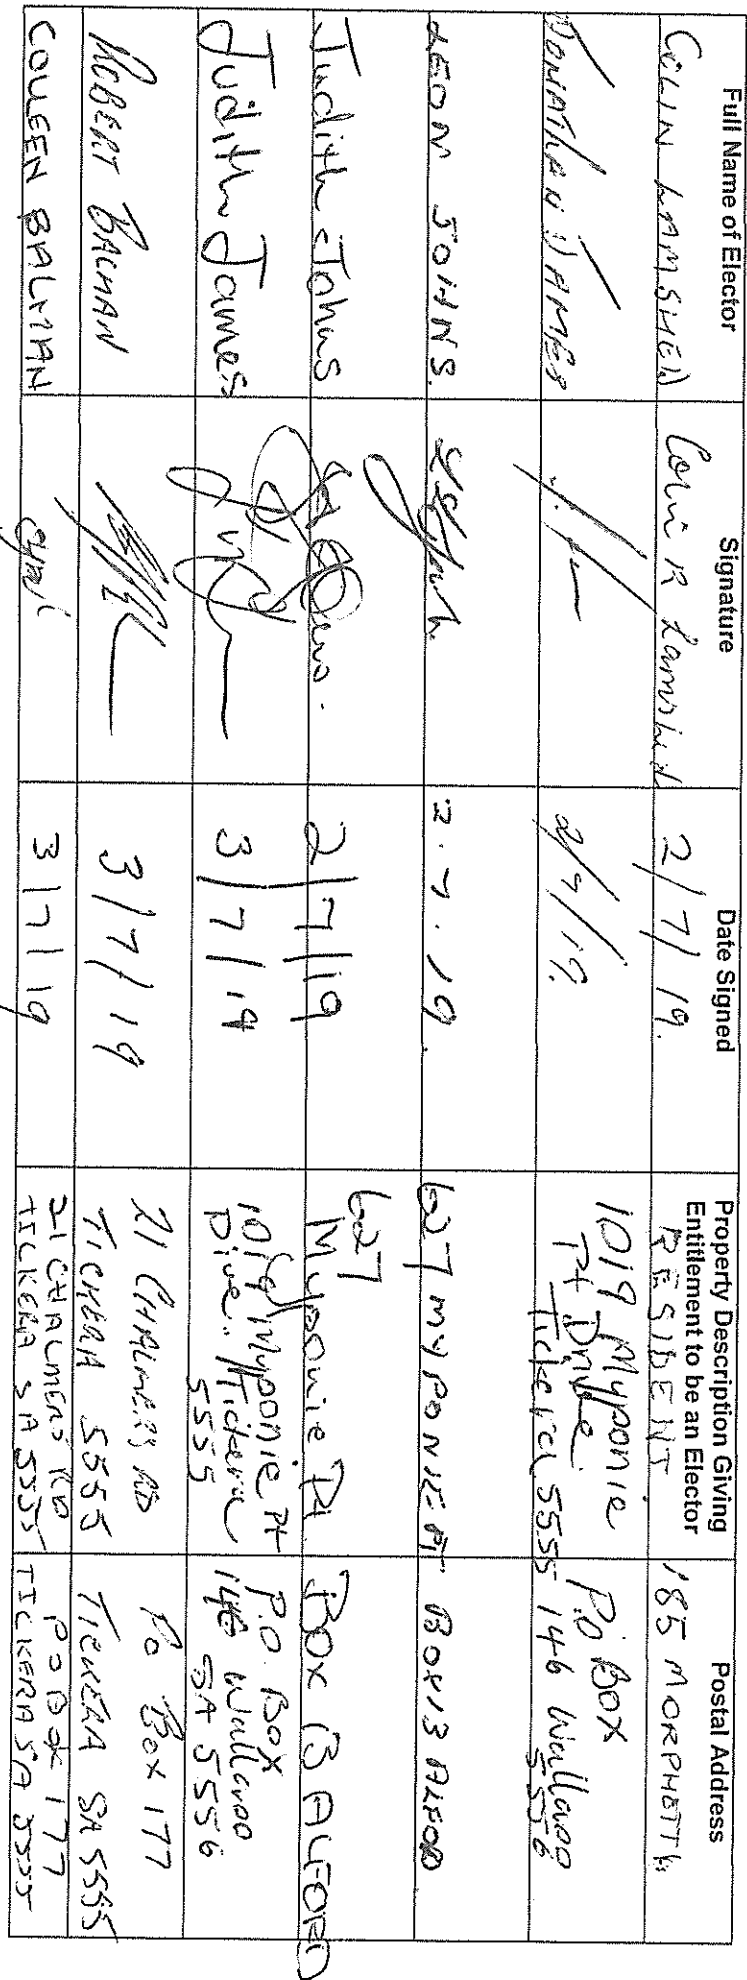 Full Name of Elector
Signature
Date Signed
Property Description Giving
Entitlement to be an Elector
Postal Address
COLIN LAMSHED
Colin R Lamshed
2/7/19.
RESIDENT
185 MORPHETT
JONATHAN JAMES
2/7/19.
1019 Myponie
Pt Drive
Tickera 5555
P.O Box
146 Wallaroo
5556
LEON JOHNS.
2.7.19.
627 MYPONIE PT
BOX 13 ALFORD
Judith Johns
2/7/19
627
Myponie Pt.
BOX 13 ALFORD
Judith James
3/7/19
1019 Myponie Pt
Drive. Tickera
5555
P.O. Box
146 Wallaroo
SA 5556
ROBERT BACMAN
3/7/19
21 CHALMERS RD
TICKERA 5555
PO Box 177
TICKERA SA 5555
COLLEEN BALMAN
3/7/19
21 CHALMERS RD
TICKERA SA 5555
PO BOX 177
TICKERA SA 5555